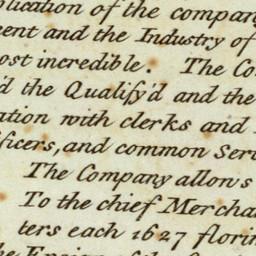 plication of the compan
ent and the Industry of
ost incredible. The Co
'd the Qualify'd and the
ation with clerks and
ficers, and common Ser
The Company allows
To the chief Mercha
ters each 1627 florin